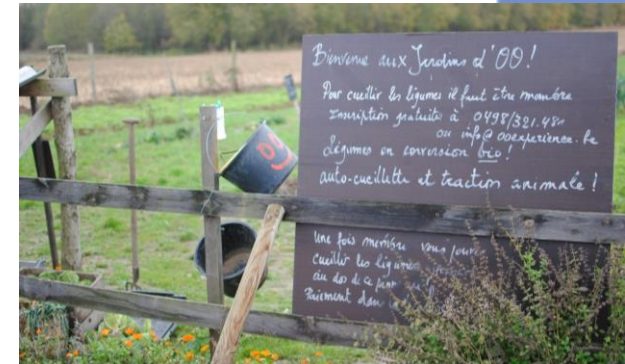 Bienvenue aux Jardins d'OO!
Pour cueillir les légumes il faut être membre
Inscription gratuite à 0498/321.481
ou info@ooexperience.be
Légumes en conversion bio!
auto-cueillette et traction animale!
Une fois membre vous
cueillir les légumes
au dos de ce
Paiement dan